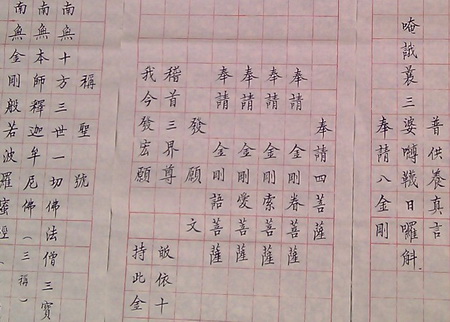 普供養真言
唵誐曩三婆嚩韈日囉斛
奉請八金剛
奉請四菩薩
奉請金剛眷菩薩
奉請金剛索菩薩
奉請金剛愛菩薩
奉請金剛語菩薩
發願文
稽首三界尊 皈依十
我今發宏願 持此金
稱聖號
南無十方三世一切佛法僧三寶
南無本師釋迦牟尼佛（三稱）
南無金剛般若波羅蜜經